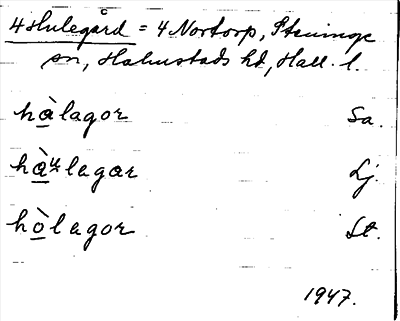 4 Hulegård = 4 Nortorp, Steninge
sn, Halmstads hd, Hall. l.
hàlagor Sa.
hàᵘlagar Lj
hòlagor St.
1947.